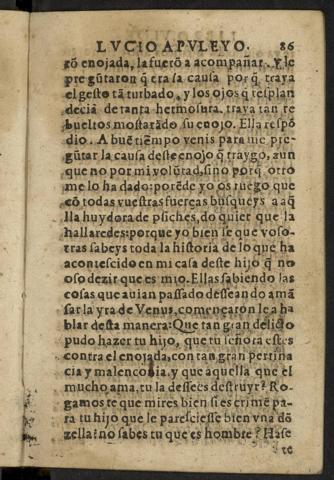 LVCIO APVLEYO. 86
rō enojada, la fuerō a acompañar. y le
pregūtaron q̃ era sa causa porq̃ traya
el gesto tā turbado, y los ojos q̃ resplan
deciā de tanta hermosura, traya tan re
bueltos mostarādo su enojo. Ella respō
dio. A buē tiēmpo venis para me pre-
gūtar la causa deste enojo q̃ traygo, aun
que no por mi volūtad, sino porq̃ otro
me lo ha dado: porēde yo os ruego que
cō todas vuestras fuerças busqueys a aq̃
lla huydora de psiches, do quier que la
hallaredes: porque yo bien se que voso-
tras sabeys toda la historia de lo que ha
acontescido en mi casa deste hijo q̃ no
oso dezir que es mio. Ellas sabiendo las
cosas que auian passado desseando amā
sar la yra de Venus, començaron le a ha
blar desta manera: Que tan gran delicto
pudo hazer tu hijo, que tu señora estes
contra el enojada, con tan gran pertina
cia y malenconia, y que aquella que el
mucho ama, tu la dessees destruyr? Ro-
gamos te que mires bien si es crimē pa-
ra tu hijo que le paresciesse bien vna dō
zella? no sabes tu que es hombre? Hase
te